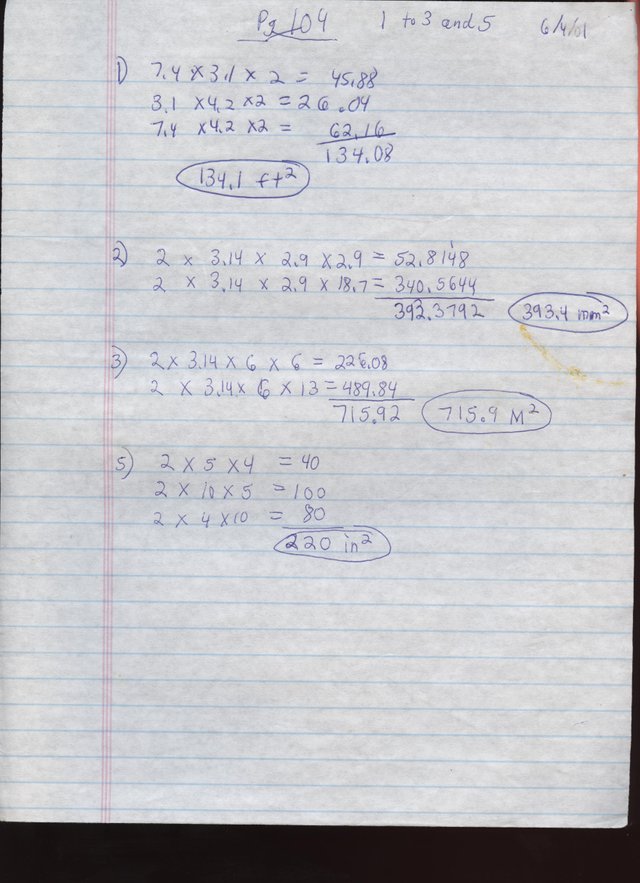 Pg 104 1 to 3 and 5 6/4/01
1) 7.4 x 3.1 x 2 = 45.88
3.1 x 4.2 x 2 = 26.04
7.4 x 4.2 x 2 = 62.16
134.08
134.1 ft²
2) 2 x 3.14 x 2.9 x 2.9 = 52.8148
2 x 3.14 x 2.9 x 18.7 = 340.5644
393.3792 393.4 mm²
3) 2 x 3.14 x 6 x 6 = 226.08
2 x 3.14 x 6 x 13 = 489.84
715.92 715.9 M²
5) 2 x 5 x 4 = 40
2 x 10 x 5 = 100
2 x 4 x 10 = 80
220 in²